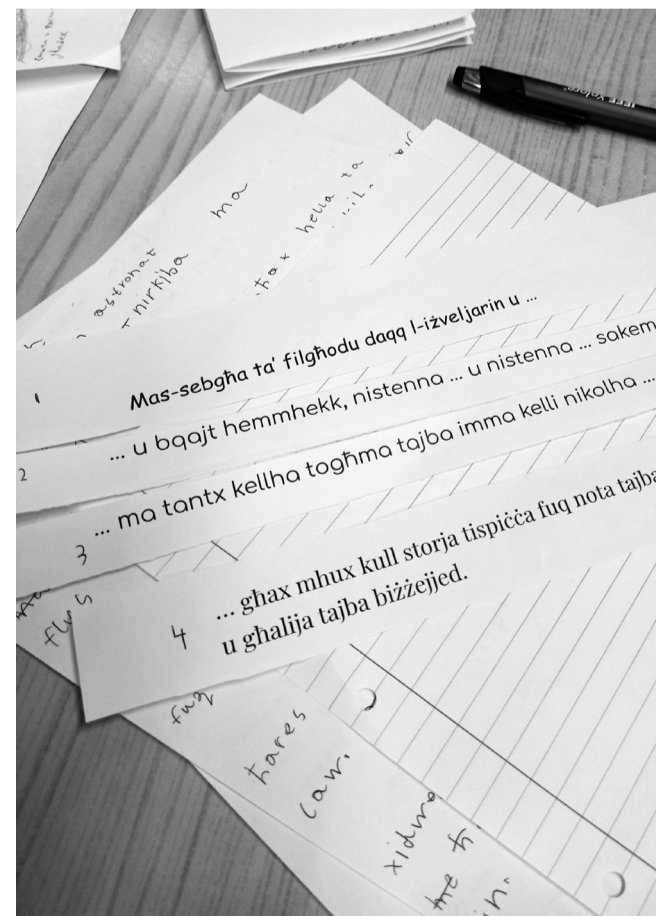 ma
hella ta
ħax
astronat
nirkiba
IEEE Xplore
1
Mas-sebgħa ta' filgħodu daqq l-iżveljarin u ...
2
... u bqajt hemmhekk, nistenna ... u nistenna ... sakem
3
... ma tantx kellha togħma tajba imma kelli nikolha ...
4
... għax mhux kull storja tispiċċa fuq nota tajba
u għalija tajba biżżejjed.
flus
fuq
ħares
xidma